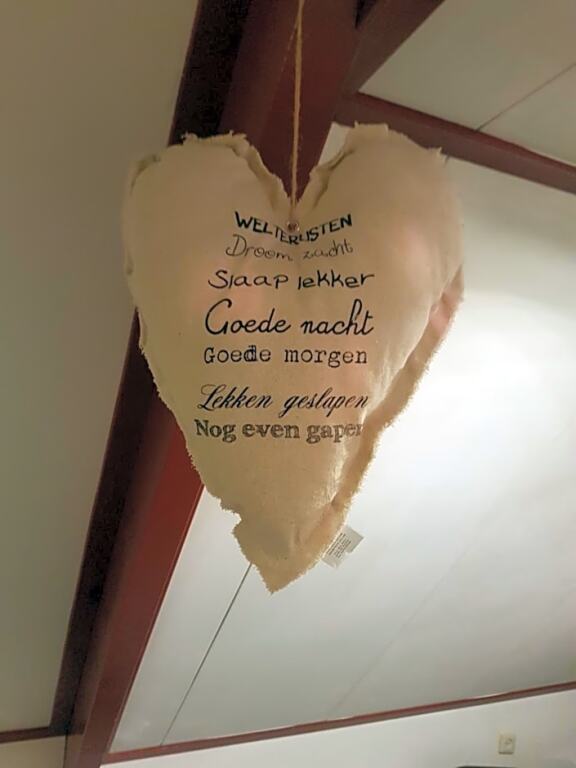 WELTERUSTEN
Droom zacht
Slaap lekker
Goede nacht
Goede morgen
Lekken geslapen
Nog even gapen